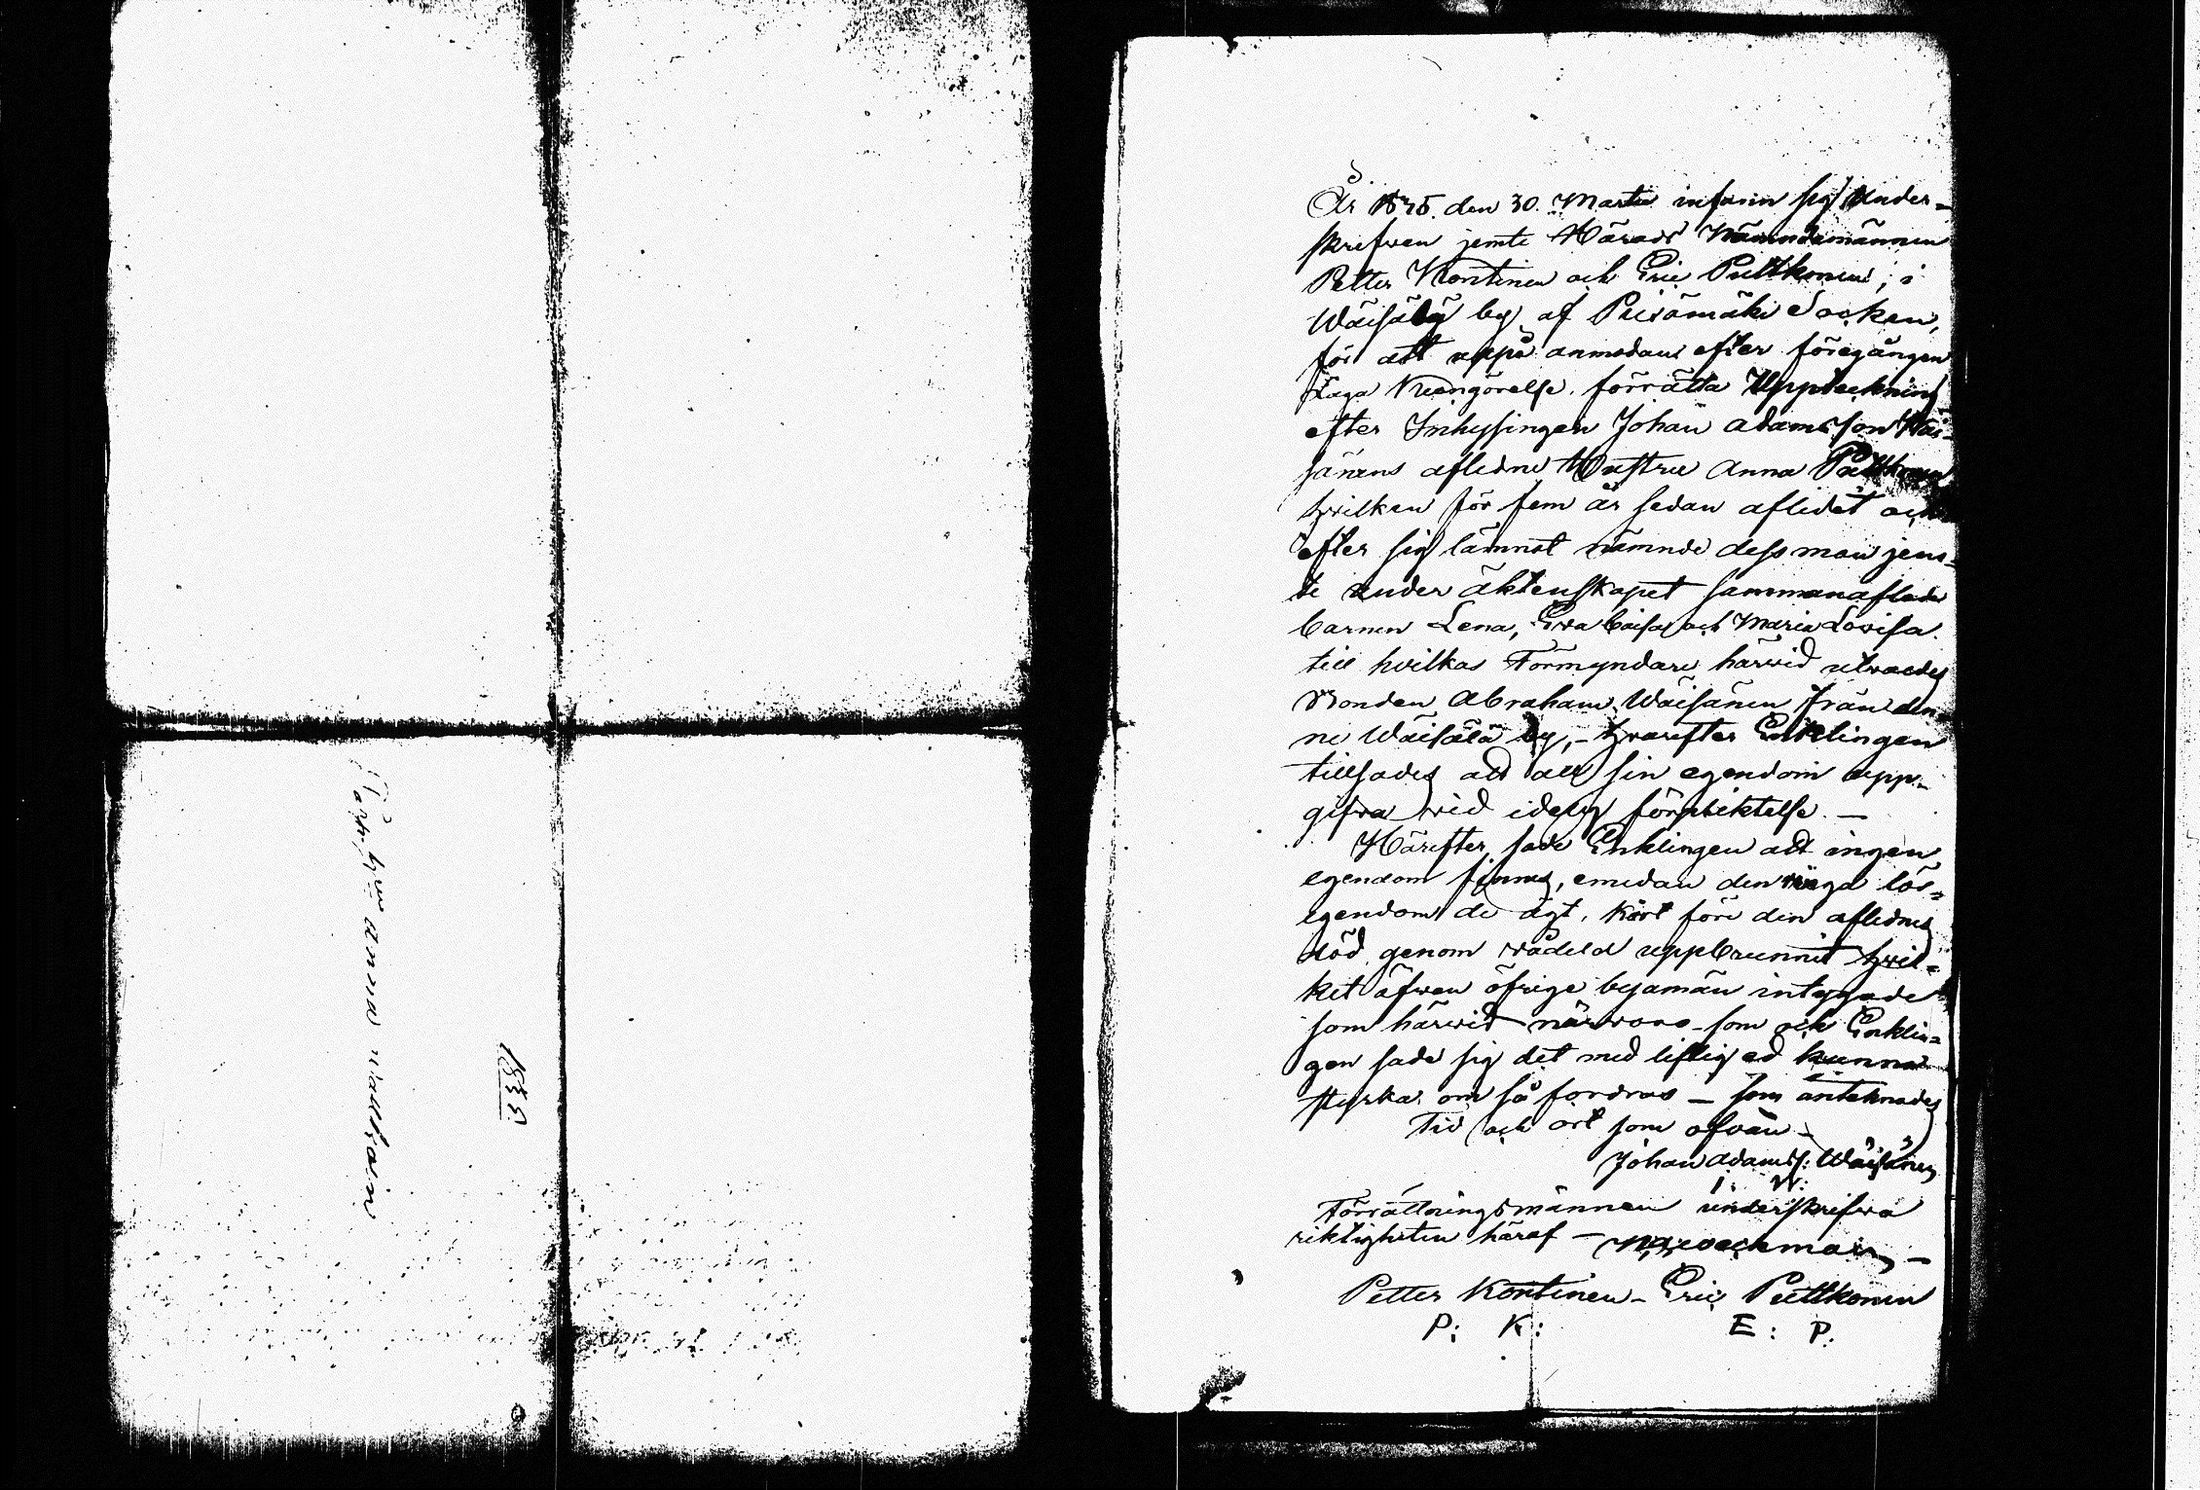 År 1835. den 30. Martii infann sig Under-
skrefven jemte Härads Nämndemännen
Petter Kontinen och Eric Puttkonen, i
Wäisälä by af Peisämäki Socken,
för att uppå anmodan efter föregången
Laga Kungörelse, förrätta Uppteckning
efter Inhysingen Johan Adamsson Wäi-
sänens aflidne Hustru Anna Puttkonen
hvilken för fem år sedan aflidet och
efter sig lämnat nämnde dess man jem-
te under äktenskapet sammanaflade
barnen Lena, Eva Caisa och Maria Lovisa.
till hvilkas Förmyndare härvid utvaldes
Bonden Abraham Wäisänen från den-
ne Wäisälä by, - hvarefter Enklingen
tillsades att all sin egendom upp-
gifva vid edelig förpliktelse. —
Härefter sade Enklingen att ingen
egendom finnes, emedan den ringa lös-
egendom de ägt, kort före den aflidnes
död, genom vådeld uppbrunnit hvil-
ket äfven öfrige byamän intygade
som härvid närvoro - som och Enklin-
gen sade sig det med liflig ed kunna
styrka om så fordras — som antecknades
Tid och ort som ofvan -
Johan Adamss: Wäisänen
I: W:
Förrättningsmännen underskrifva
riktigheten häraf —
Petter Kontinen - Eric Puttkonen
P: K: E: P:
anna